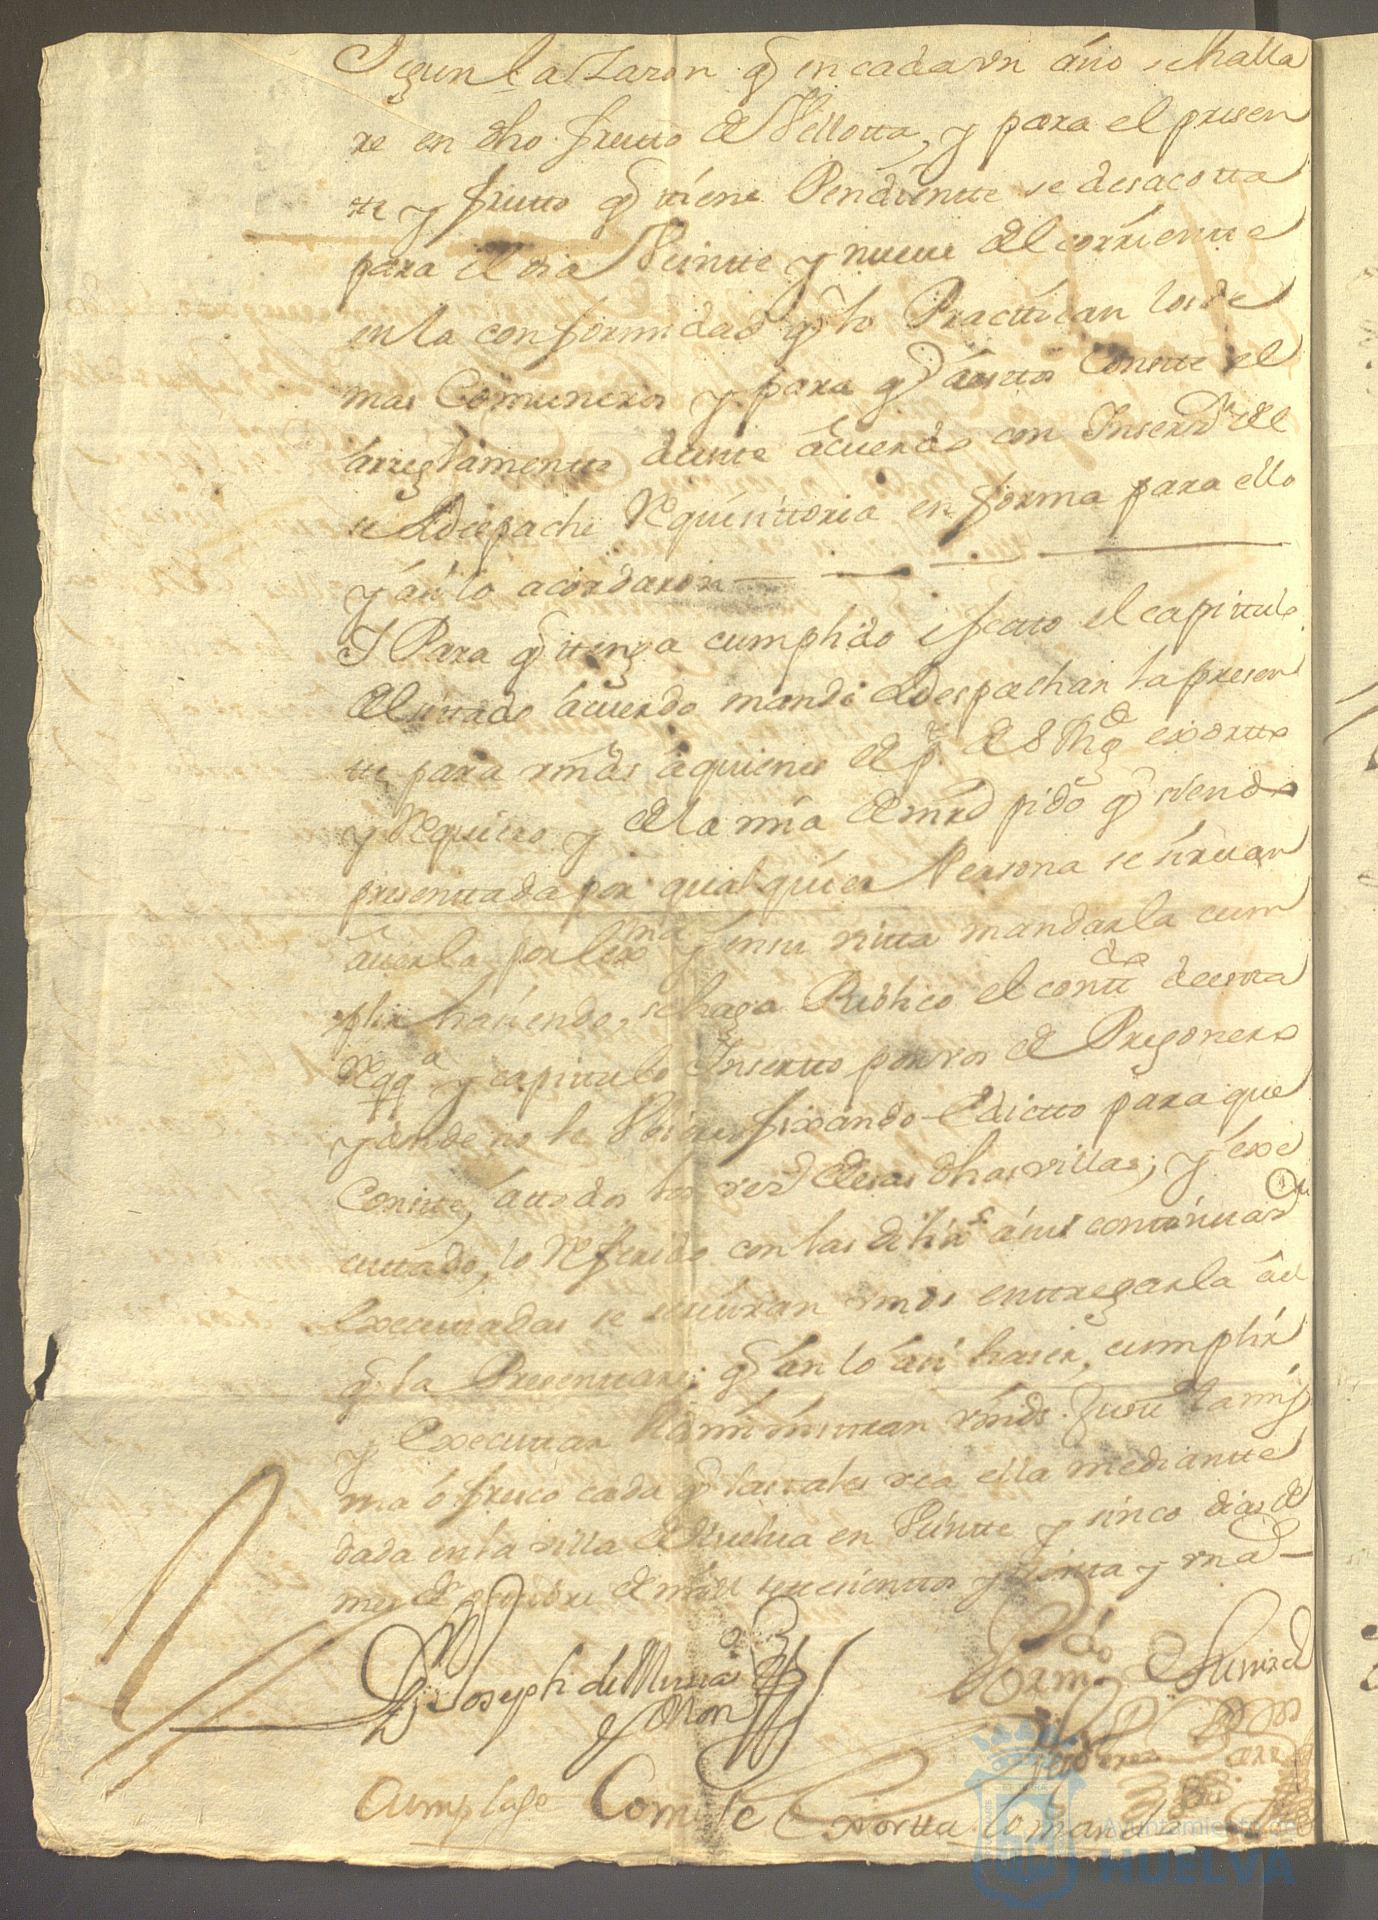 Segun la Sazon q̃ en cada vn año se halla
re en dho frutto de Vellotta, y para el presen
tte y frutto q̃ ttiene Pendientte se desacotta
para el dia Veintte y nueve del corrientte
en la conformidad q̃ lo Practtican los de
mas Comuneros y para q̃ a estos Constte el
arreglamentto deste acuerdo con Inserz.n de el
se despache Requisittoria en forma para ello
y asi lo acordaron
I Para q̃ ttenga cumplido efectto el capittulo
del cittado acuerdo mande despachar la presen
tte para vmds a quienes de p.te de S Mg.d exortto
y Requiero y de la mia de mrd pido q̃ siendo
presenttada por qualquier Persona se sirvan
averla por lex.ma y en su vistta mandarla cum
plir haciendo, se haga Publico el contt.do de estta
Rqq.a y capittulo Insertto por vos de Pregonero
y donde no le Vbiere fixando Edictto para que
Constte, a ttodos los vez.s de esas dhas villas; y exe
cuttado, lo Referido con las dilix.s a su conttinuaz.n
Executtadas se serviran vmds enttregarla al
q̃ la Presenttare; q̃ en lo asi haser, cumplir
y Executtar Administtran vmds. Justt.a la mis
ma ofresco cada q̃ las tales vea ella mediantte
dada en la villa de Huelva en Veintte y sinco dias de
mes de octtubre de mill settesienttos y ttreinta y vn a.s
D.n Joseph de
Por m.do
Cumplase Como se Exortta lo mando
Ayuntamiento de
HUELVA